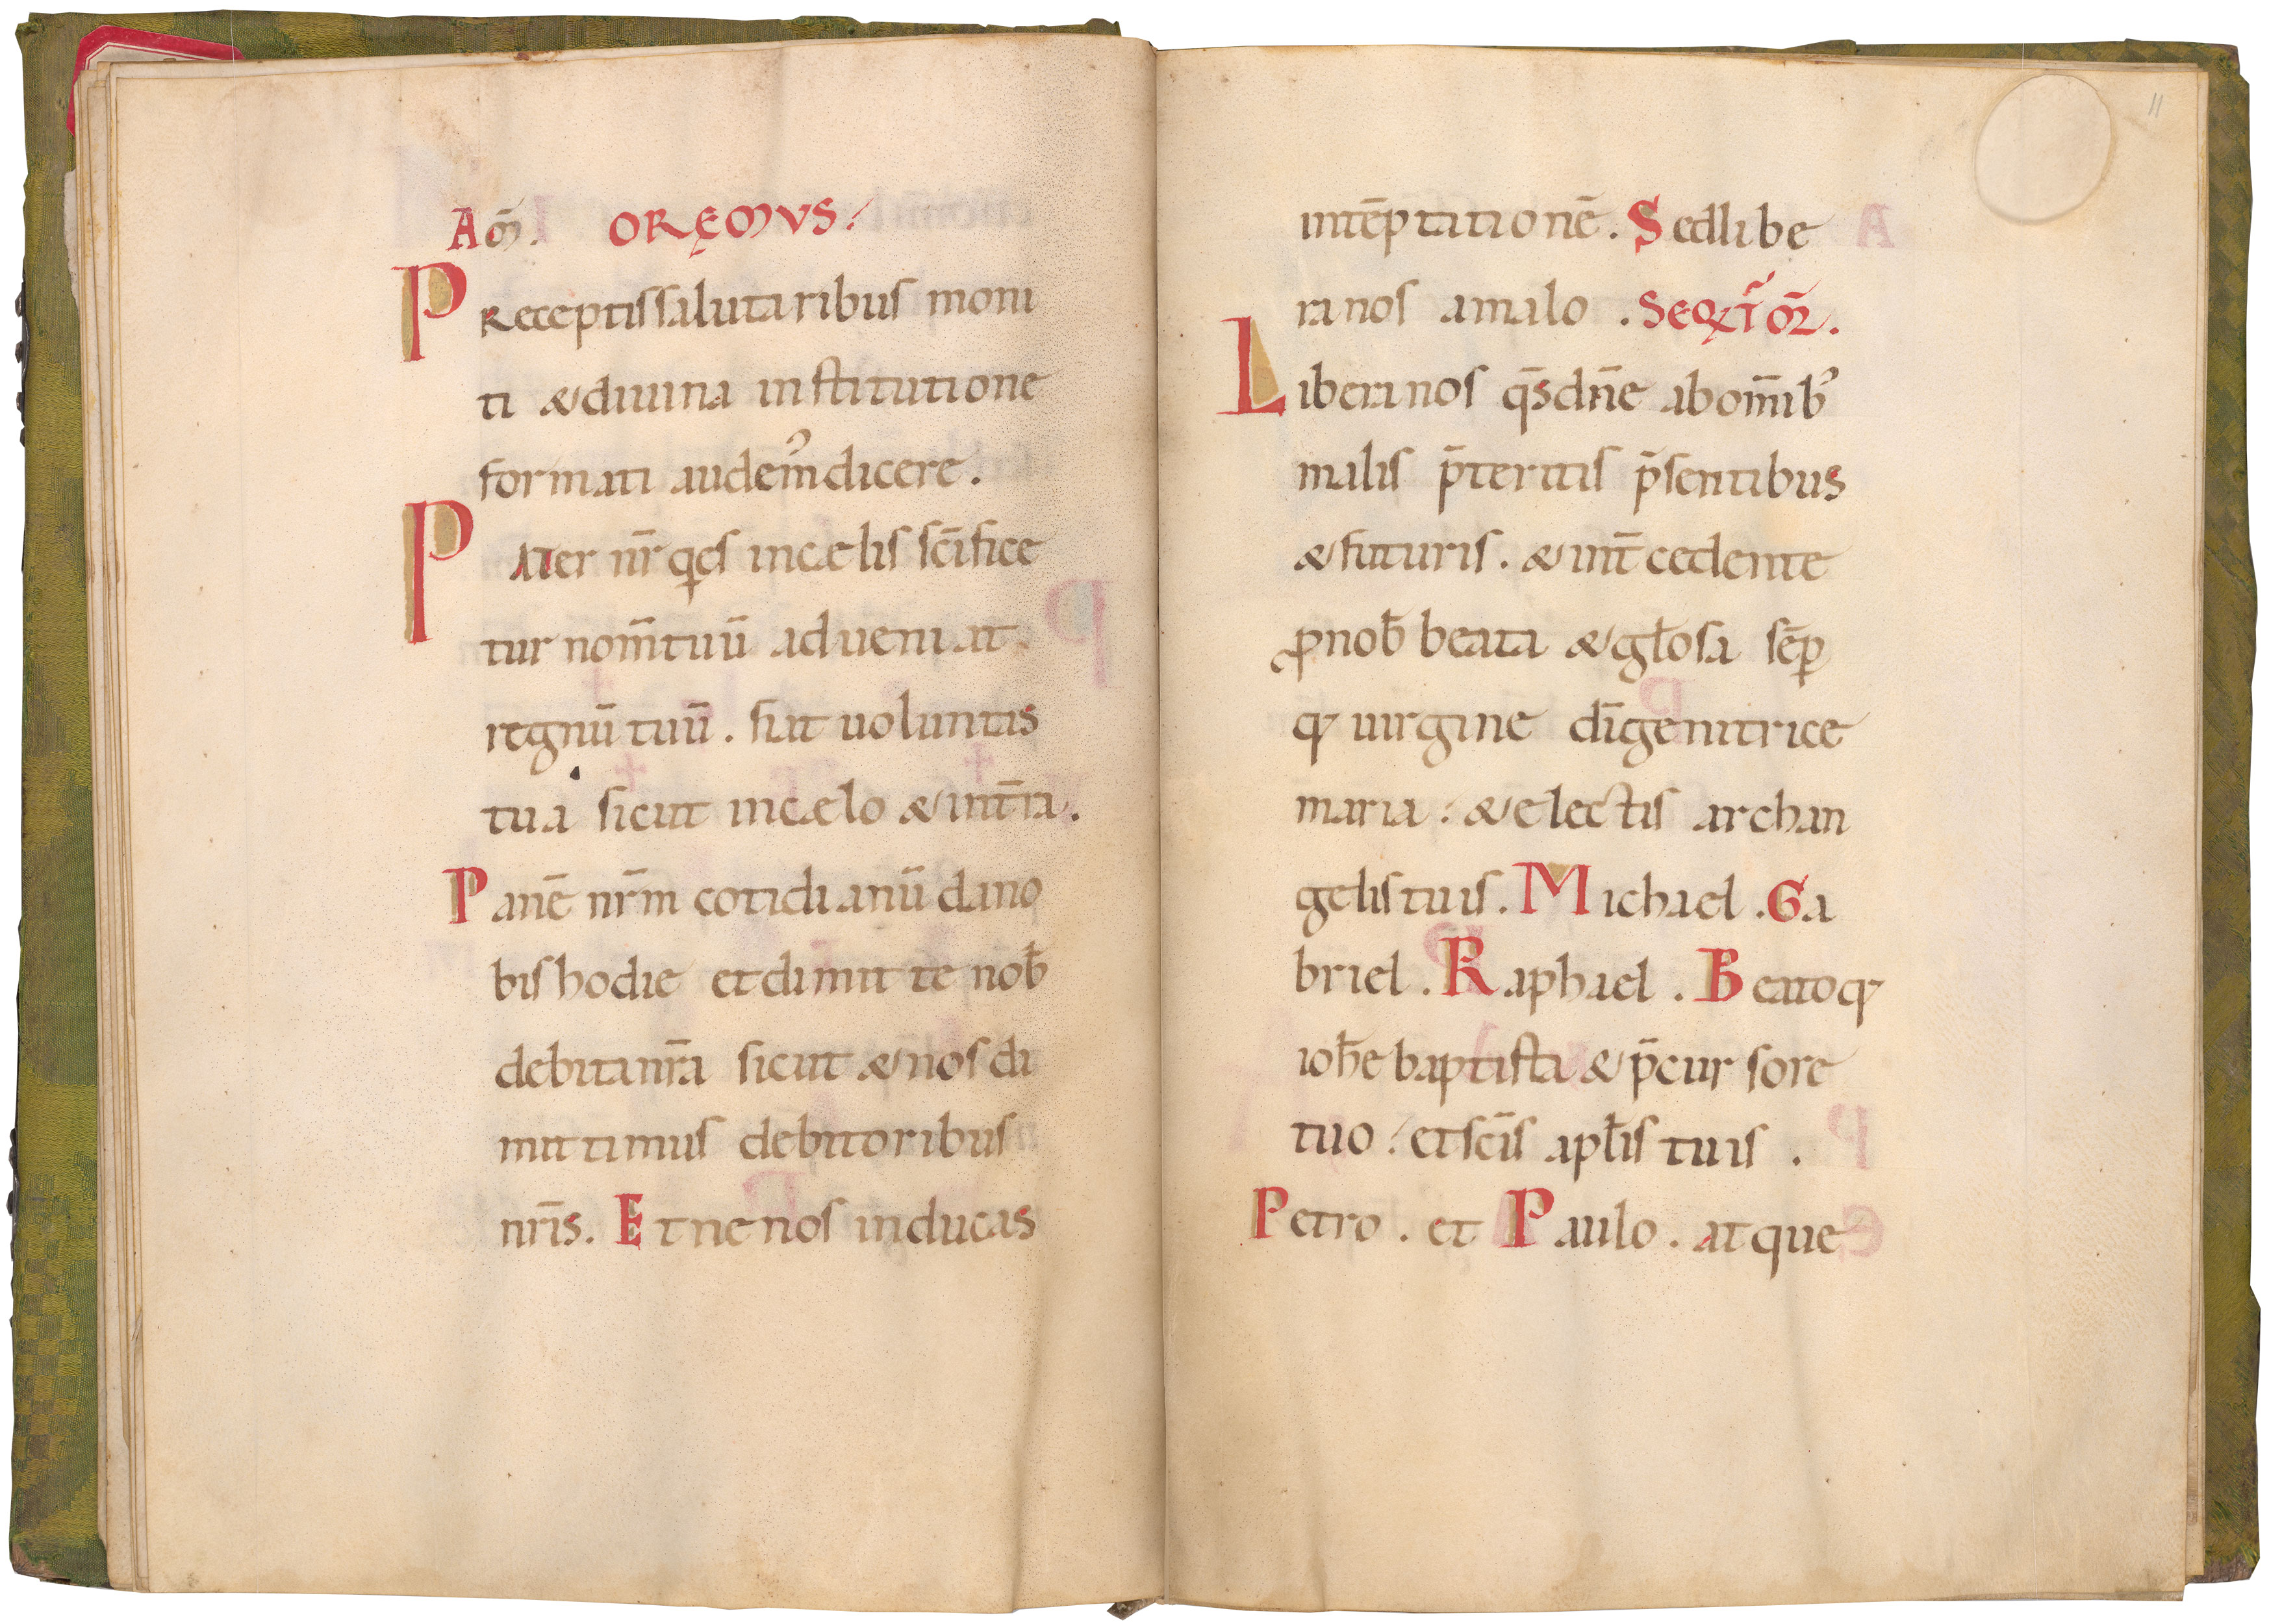 Am̄. ORĘMVS
Preceptis salutaribus moni
ti & diuina institutione
formati audem᾽ dicere.
Pater nr̄ q̄es in cælis scīfice
tur nom̄ tuū adueniat
regnū tuū. fiat uoluntas
tua sicut in cælo & in tr̄a.
Panē nr̄m cotidianū da no
bis hodie et dimitte nob̄
debita nr̄a sicut & nos di
mittimus debitoribus
nr̄is. Et ne nos inducas
11
in tēptationē. Sed libe
ra nos a malo. Seqt̄ or̄.
Libera nos qs̄ dn̄e ab om̄ib᾽
malis p̄teritis p̄sentibus
& futuris. & int̄cedente
ꝓ nob̄ beata & gl̄osa sēp
q; uirgine dī genitrice
maria. & electis archan
gelis tuis. Michael. Ga
briel. Raphael. Beatoq;
ioh̄e baptista & p̄cursore
tuo. et scīs apl̄is tuis.
Petro. et Paulo. atque